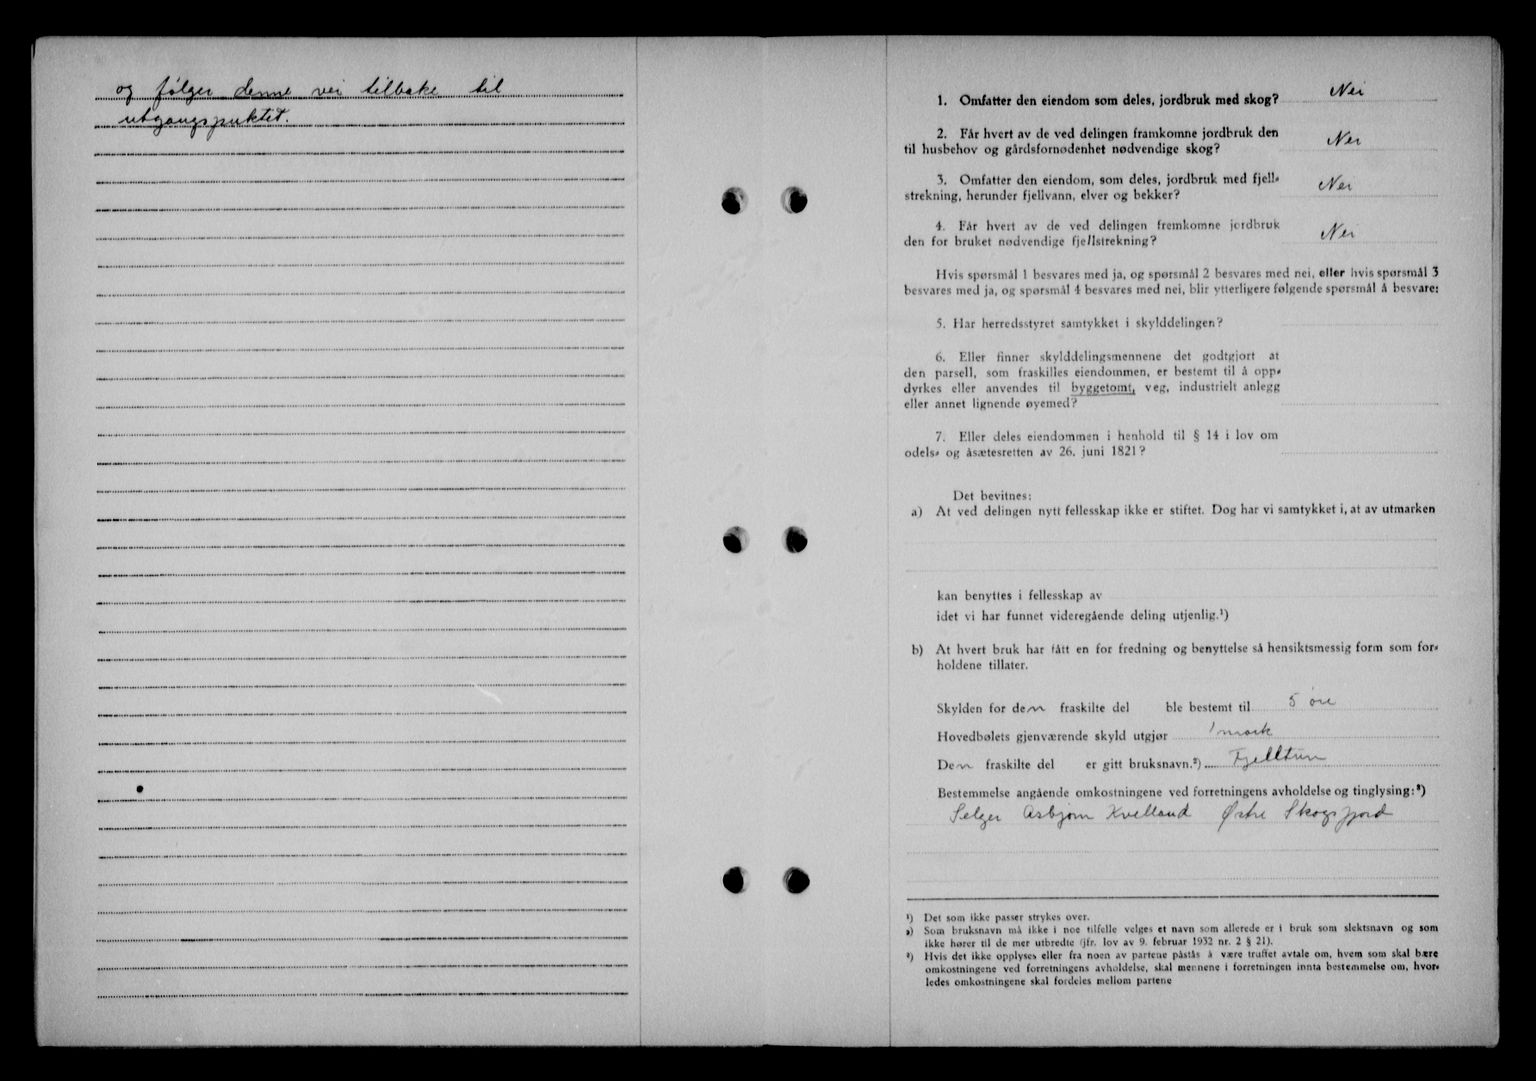 og følger denne vei tilbake til
utgangspuktet.
1. Omfatter den eiendom som deles, jordbruk med skog? Nei
2. Får hvert av de ved delingen framkomne jordbruk den
til husbehov og gårdsfornødenhet nødvendige skog? Nei
3. Omfatter den eiendom, som deles, jordbruk med fjell-
strekning, herunder fjellvann, elver og bekker? Nei
4. Får hvert av de ved delingen fremkomne jordbruk
den for bruket nødvendige fjellstrekning? Nei
Hvis spørsmål 1 besvares med ja, og spørsmål 2 besvares med nei, eller hvis spørsmål 3
besvares med ja, og spørsmål 4 besvares med nei, blir ytterligere følgende spørsmål å besvare:
5. Har herredsstyret samtykket i skylddelingen?
6. Eller finner skylddelingsmennene det godtgjort at
den parsell, som fraskilles eiendommen, er bestemt til å opp-
dyrkes eller anvendes til byggetomt, veg, industrielt anlegg
eller annet lignende øyemed?
7. Eller deles eiendommen i henhold til § 14 i lov om
odels- og åsætesretten av 26. juni 1821?
Det bevitnes:
a) At ved delingen nytt fellesskap ikke er stiftet. Dog har vi samtykket i, at av utmarken
kan benyttes i fellesskap av
idet vi har funnet videregående deling utjenlig.¹)
b) At hvert bruk har fått en for fredning og benyttelse så hensiktsmessig form som for-
holdene tillater.
Skylden for den fraskilte del ble bestemt til 5 øre
Hovedbølets gjenværende skyld utgjør 1 mark
Den fraskilte del er gitt bruksnavn.²) Fjelltun
Bestemmelse angående omkostningene ved forretningens avholdelse og tinglysing:³)
Selger Asbjørn Kvelland Østre Skogsfjord
¹) Det som ikke passer strykes over.
²) Som bruksnavn må ikke i noe tilfelle velges et navn som allerede er i bruk som slektsnavn og som
ikke hører til de mer utbredte (jfr. lov av 9. februar 1932 nr. 2 § 21).
³) Hvis det ikke opplyses eller fra noen av partene påstås å være truffet avtale om, hvem som skal bære
omkostningene ved forretningens avholdelse, skal mennene i forretningen innta bestemmelse om, hvor-
ledes omkostningene skal fordeles mellom partene